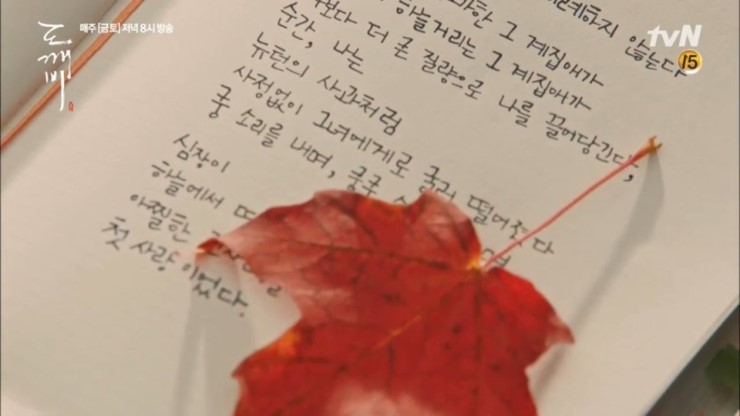 도깨비
매주 [금토] 저녁 8시 방송
tvN
15
않는다
하늘거리는 그 계집애가
더 큰 질량으로 나를 끌어당긴다,
순간, 나는
뉴턴의 사과처럼
사정없이 그녀에게로 굴러 떨어졌다
쿵 소리를 내며, 쿵쿵
심장이
하늘에서
아찔한
첫 사랑이었다.